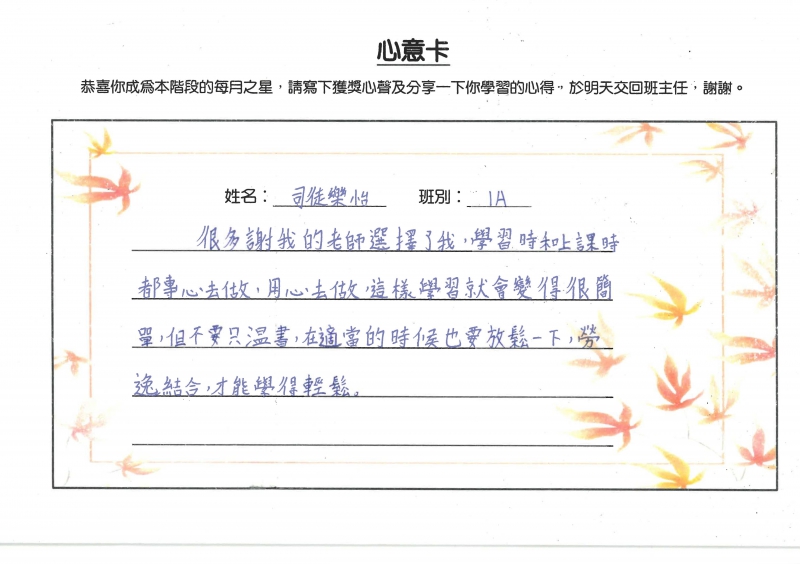 心意卡
恭喜你成為本階段的每月之星，請寫下獲獎心聲及分享一下你學習的心得。於明天交回班主任，謝謝。
姓名： 司徒樂怡 班別： 1A
很多謝我的老師選擇了我，學習時和上課時
都專心去做，用心去做，這樣學習就會變得很簡
單，但不要只溫書，在適當的時候也要放鬆一下，勞
逸結合，才能學得輕鬆。